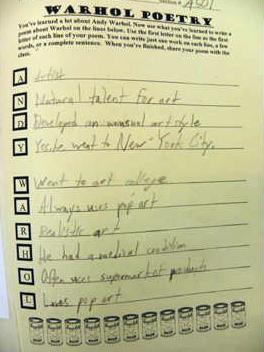 WARHOL POETRY
You've learned a lot about Andy Warhol. Now use what you've learned to write a
poem about Warhol on the lines below. Use the first letter on the line as the first
letter of each line of your poem. You can write just one word on each line, a few
words, or a complete sentence. When you're finished, share your poem with the
class.
A Artist
N Natural talent for art
D Developed an unusual art style
Y Yes he went to New York City.
W Went to art college
A Always uses pop art
R Realistic art
H He had a medical condition
O Often uses supermarket products
L Loves pop art